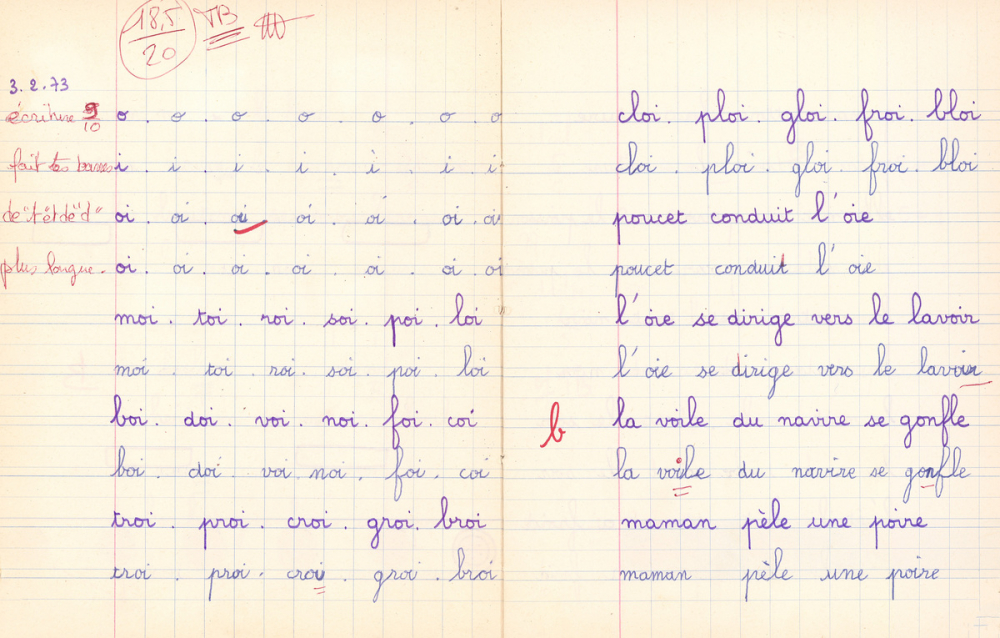 18,5
20
TB
3.2.73
écriture 9/10
o . o . o . o . o . o . o
fait tes barres
i . i . i . i . i . i . i
de "t" et de "d"
oi . oi . oi . oi . oi . oi . oi
plus longue.
oi . oi . oi . oi . oi . oi . oi
moi . toi . roi . soi . poi . loi
moi . toi . roi . soi . poi . loi
boi . doi . voi . noi . foi . coi
boi . doi . voi . noi . foi . coi
troi . proi . croi . groi . broi
troi . proi . croi . groi . broi
cloi . ploi . gloi . froi . bloi
cloi . ploi . gloi . froi . bloi
poucet conduit l'oie
poucet conduit l'oie
l'oie se dirige vers le lavoir
l'oie se dirige vers le lavoir
b
la voile du navire se gonfle
la voile du navire se gonfle
maman pèle une poire
maman pèle une poire